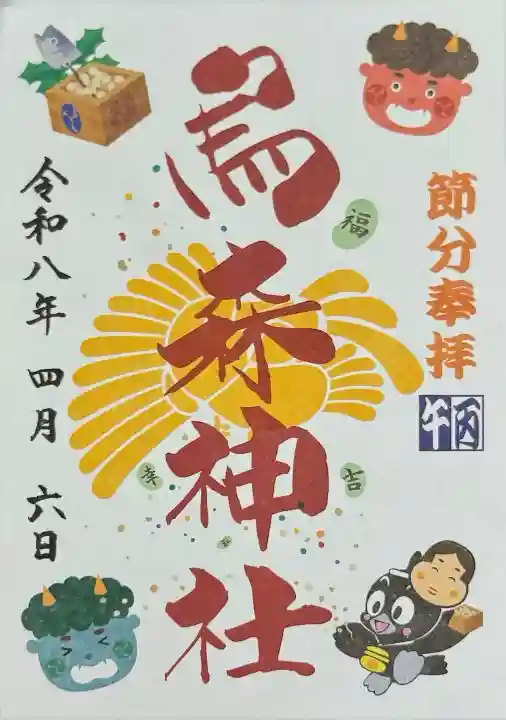 節分奉拝
丙午
烏森神社
福
幸
吉
令和八年 四月 六日